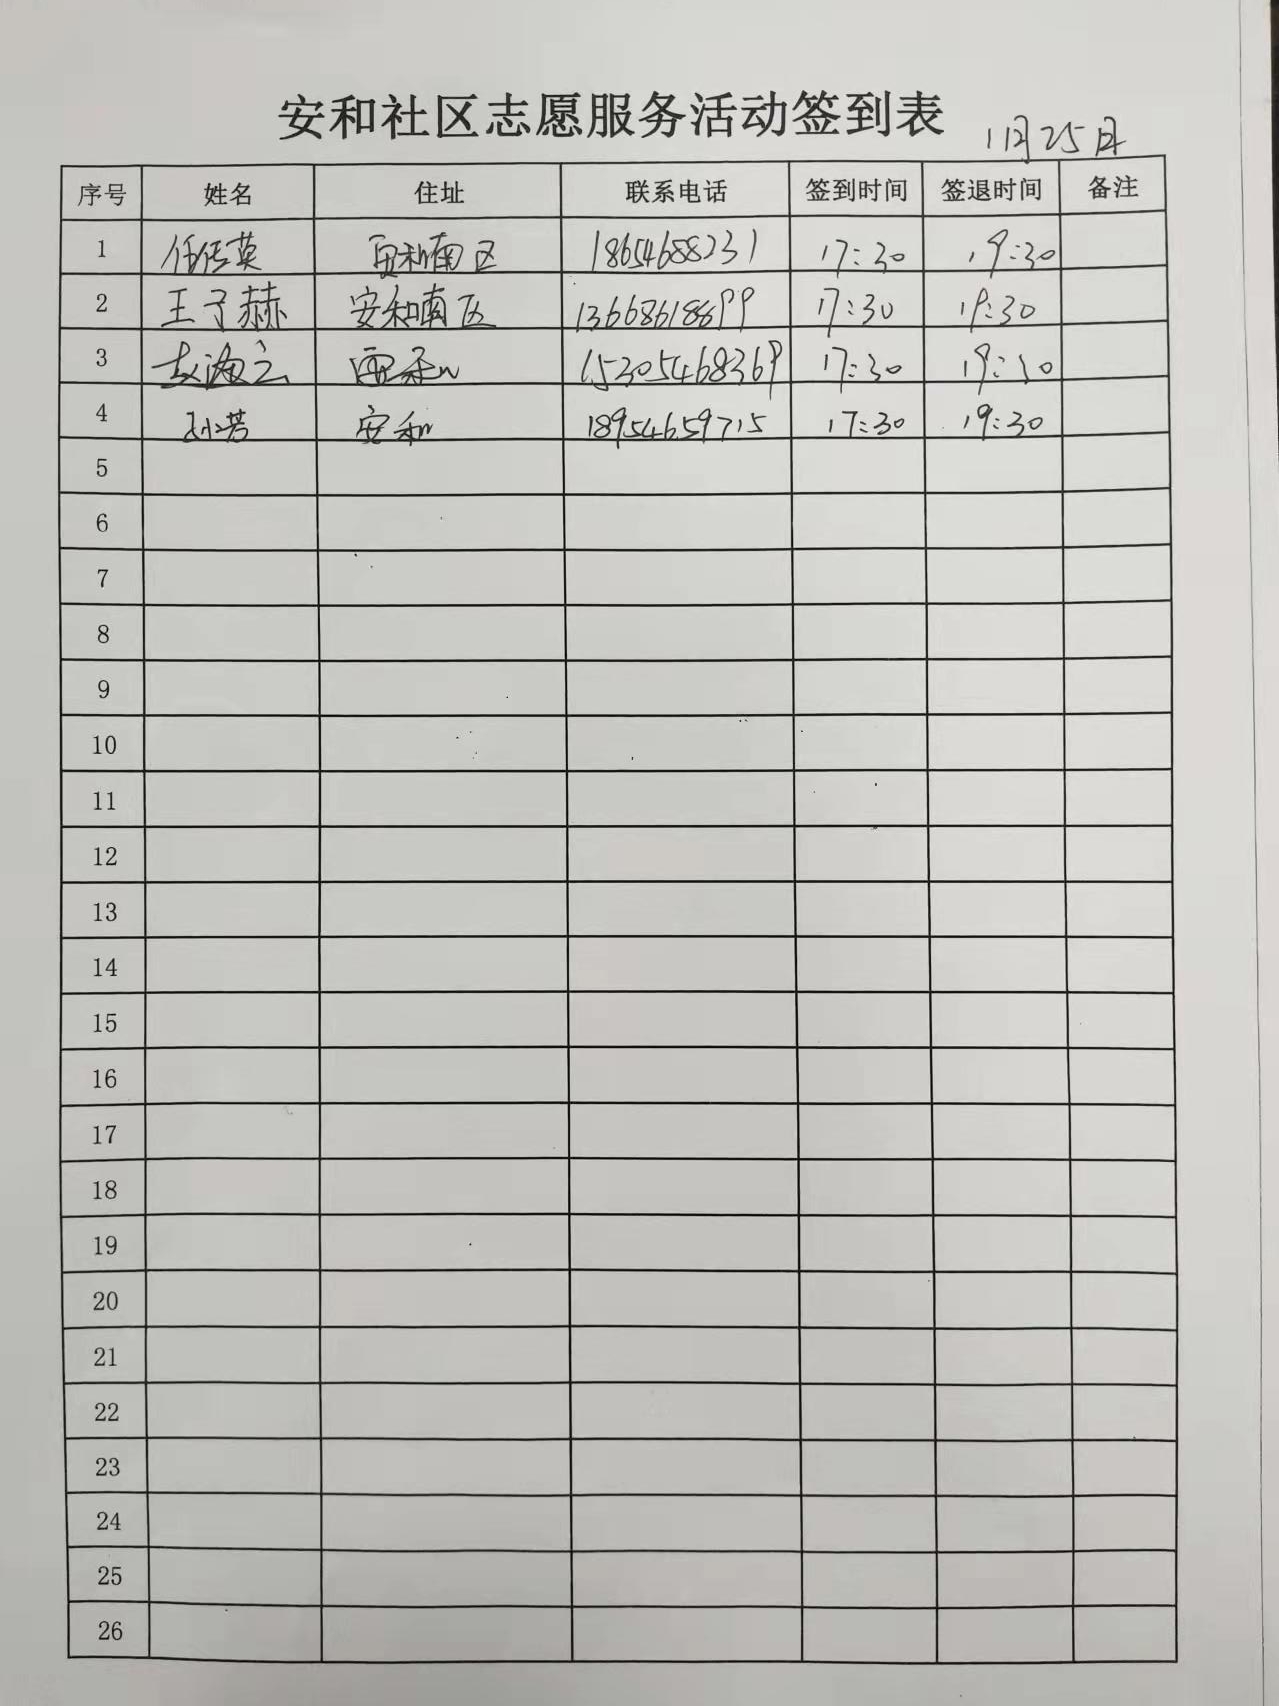 安和社区志愿服务活动签到表
11月25日
序号 姓名 住址 联系电话 签到时间 签退时间 备注
1 任传英 安和南区 18654688231 17:30 19:30
2 王子赫 安和南区 13668618699 17:30 19:30
3 15305468369 17:30 19:30
4 孙芳 安和 18954659715 17:30 19:30
5
6
7
8
9
10
11
12
13
14
15
16
17
18
19
20
21
22
23
24
25
26